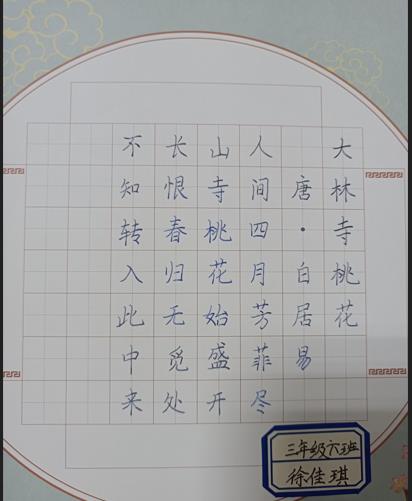 大林寺桃花
唐·白居易
人间四月芳菲尽
山寺桃花始盛开
长恨春归无觅处
不知转入此中来
三年级六班
徐佳琪